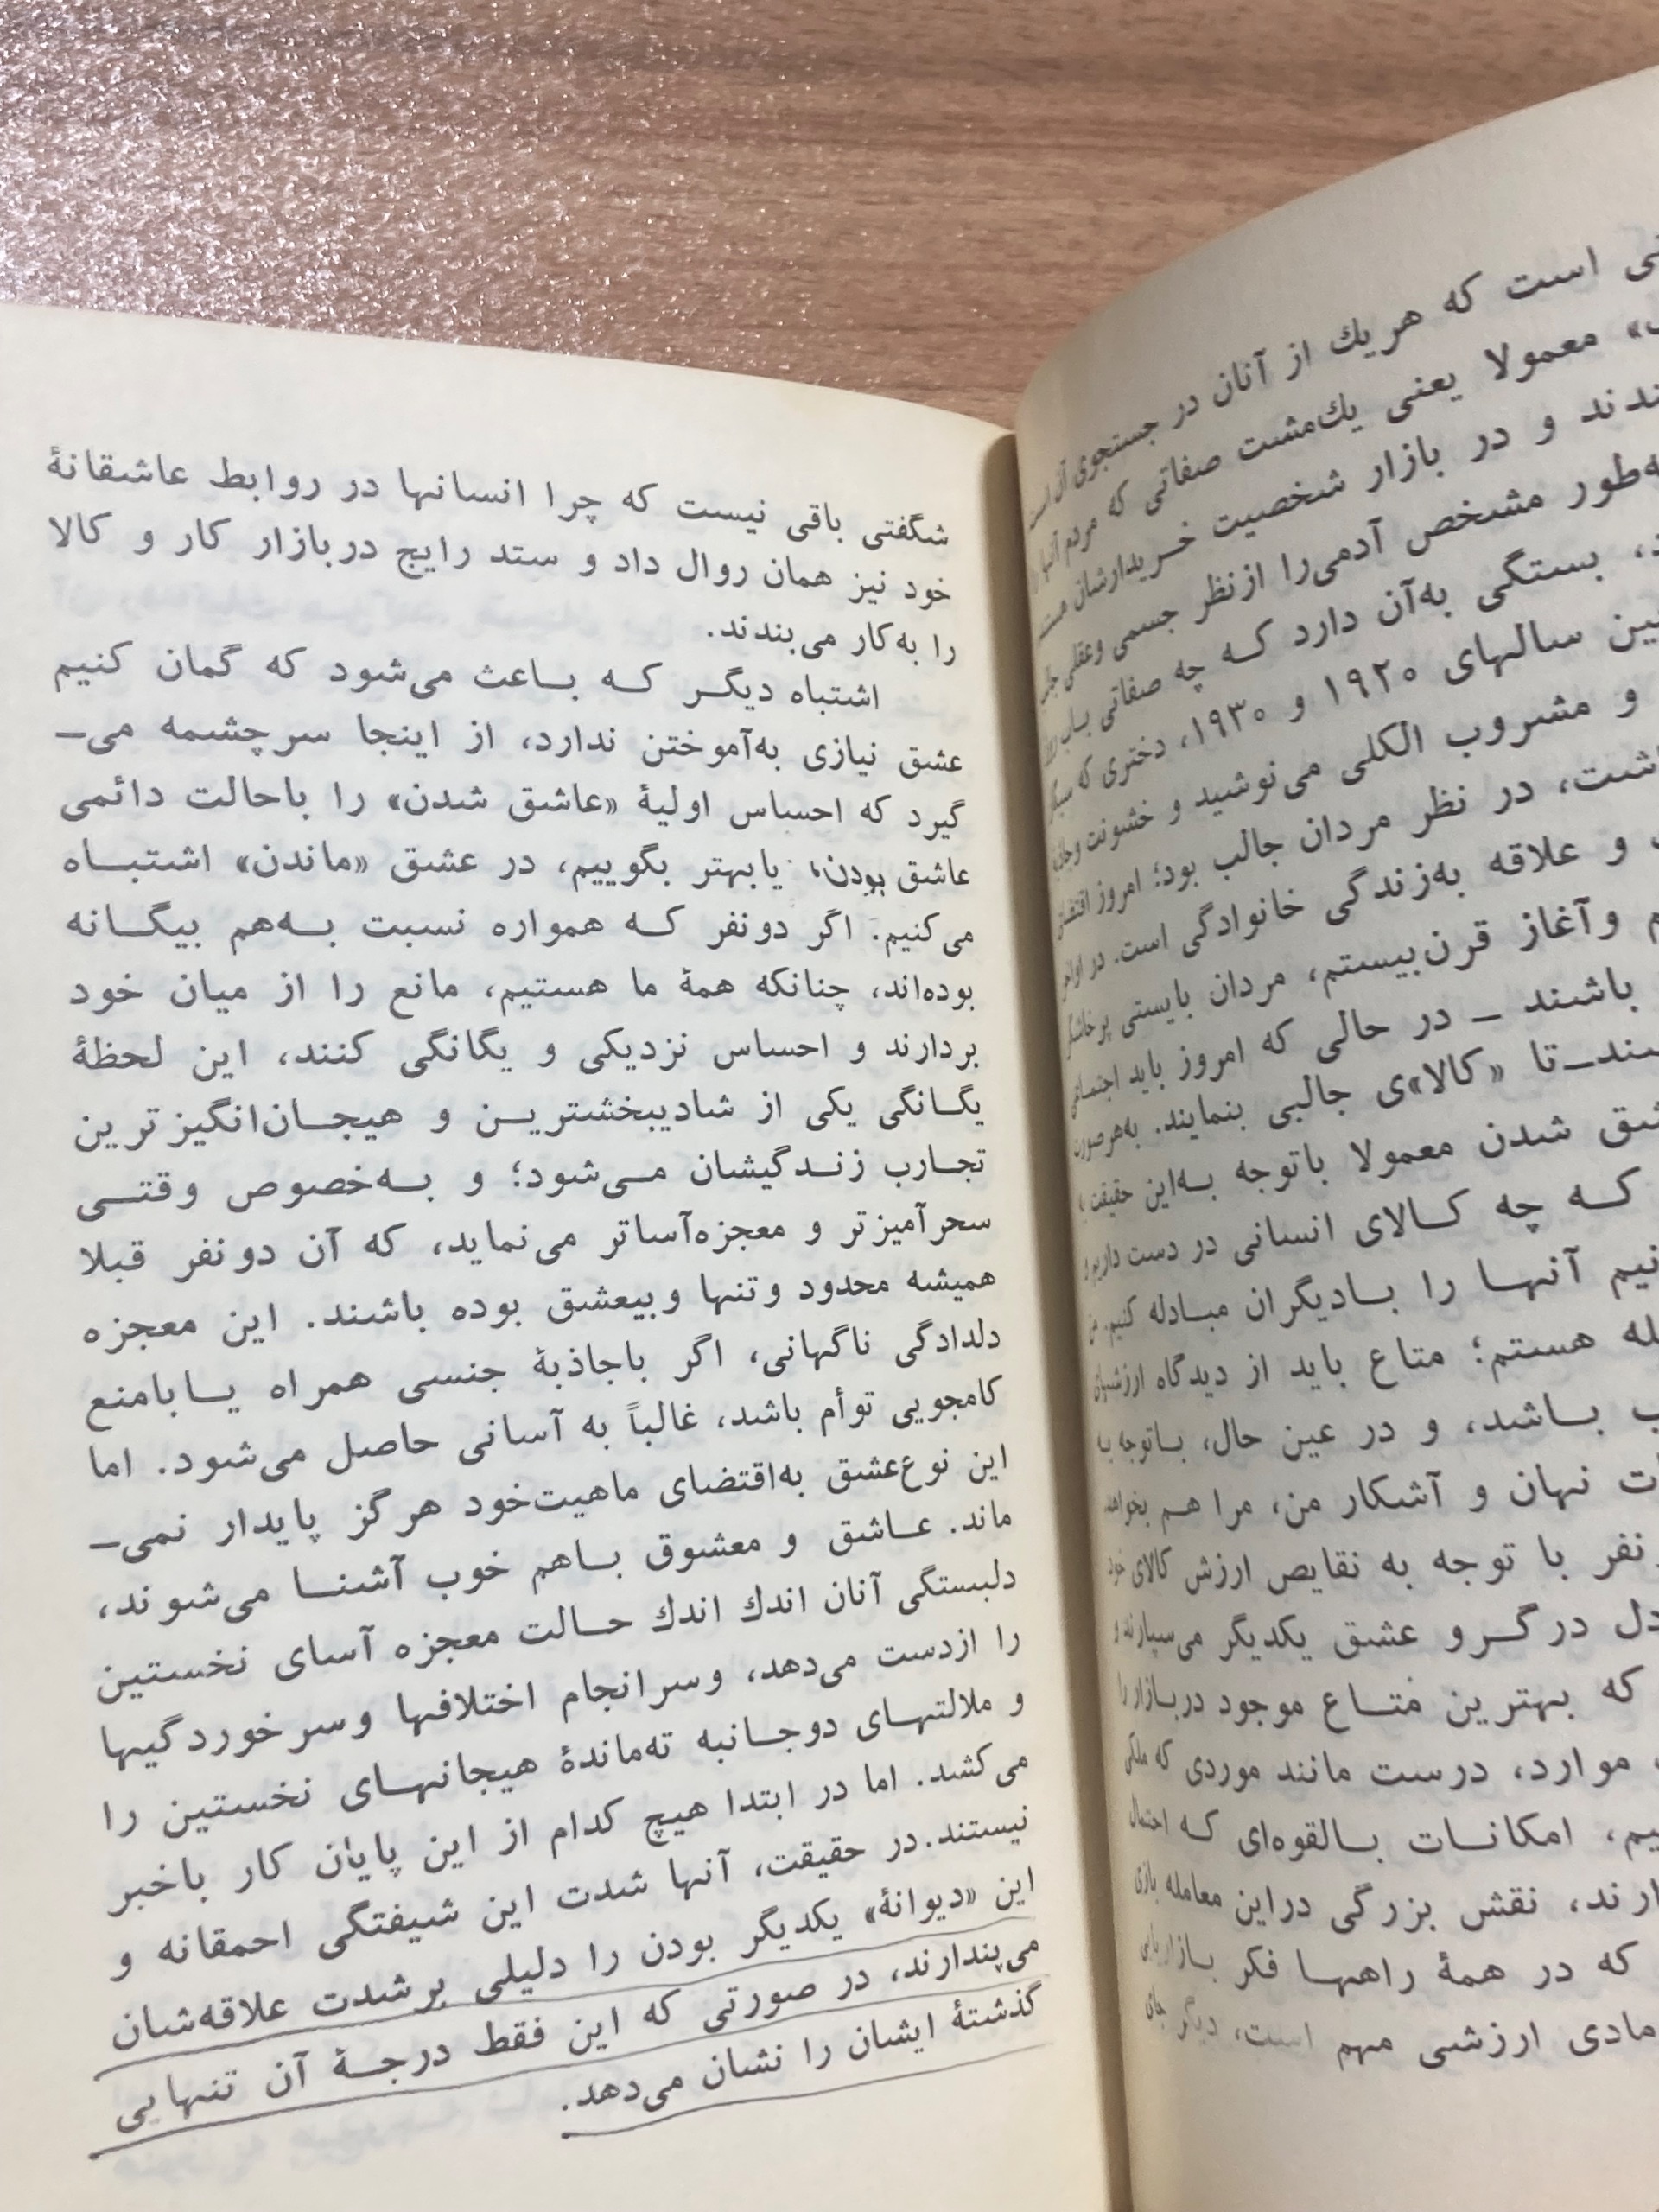 ی است که هریك از آنان در جستجوی آن است
» معمولا یعنی یك‌مشت صفاتی که مردم آنها را
ندند و در بازار شخصیت خریدارشان هستند
ه‌طور مشخص آدمی‌را ازنظر جسمی وعقلی
، بستگی به‌آن دارد که چه صفاتی باب
ین سالهای ۱۹۲۰ و ۱۹۳۰، دختری که
و مشروب الکلی می‌نوشید و خشونت
شت، در نظر مردان جالب بود؛ امروز
و علاقه به‌زندگی خانوادگی است. در اواخر
م وآغاز قرن‌بیستم، مردان بایستی پرخاشگر
باشند ــ در حالی که امروز باید اجتماعی
سند‌ــ‌تا «کالا»ی جالبی بنمایند. به‌هرصورت
شق شدن معمولا باتوجه به‌این حقیقت
که چه کالای انسانی در دست داریم
نیم آنها را بادیگران مبادله کنیم.
له هستم؛ متاع باید از دیدگاه ارزشهای
ب باشد، و در عین حال، باتوجه به
ات نهان و آشکار من، مرا هم بخواهد
نفر با توجه به نقایص ارزش کالای خود
دل درگرو عشق یکدیگر می‌سپارند و
که بهترین متاع موجود دربازار را
موارد، درست مانند موردی که ملکی
یم، امکانات بالقوه‌ای که احتمال
ارند، نقش بزرگی دراین معامله بازی
که در همهٔ راهها فکر بازاریابی
مادی ارزشی مهم است، دیگر جای
شگفتی باقی نیست که چرا انسانها در روابط عاشقانهٔ
خود نیز همان روال داد و ستد رایج دربازار کار و کالا
را به‌کار می‌بندند.
اشتباه دیگر که باعث می‌شود که گمان کنیم
عشق نیازی به‌آموختن ندارد، از اینجا سرچشمه می‌ــ
گیرد که احساس اولیهٔ «عاشق شدن» را باحالت دائمی
عاشق بودن، یابهتر بگوییم، در عشق «ماندن» اشتباه
می‌کنیم. اگر دونفر که همواره نسبت به‌هم بیگانه
بوده‌اند، چنانکه همهٔ ما هستیم، مانع را از میان خود
بردارند و احساس نزدیکی و یگانگی کنند، این لحظهٔ
یگانگی یکی از شادیبخشترین و هیجان‌انگیزترین
تجارب زندگیشان می‌شود؛ و به‌خصوص وقتی
سحرآمیزتر و معجزه‌آساتر می‌نماید، که آن دونفر قبلا
همیشه محدود وتنها وبیعشق بوده باشند. این معجزه
دلدادگی ناگهانی، اگر باجاذبهٔ جنسی همراه یابامنع
کامجویی توأم باشد، غالباً به آسانی حاصل می‌شود. اما
این نوع‌عشق به‌اقتضای ماهیت‌خود هرگز پایدار نمی‌ــ
ماند. عاشق و معشوق باهم خوب آشنا می‌شوند،
دلبستگی آنان اندك اندك حالت معجزه آسای نخستین
را ازدست می‌دهد، وسرانجام اختلافها وسرخوردگیها
و ملالتهای دوجانبه ته‌ماندهٔ هیجانهای نخستین را
می‌کشد. اما در ابتدا هیچ کدام از این پایان کار باخبر
نیستند. در حقیقت، آنها شدت این شیفتگی احمقانه و
این «دیوانهٔ» یکدیگر بودن را دلیلی برشدت علاقه‌شان
می‌پندارند، در صورتی که این فقط درجهٔ آن تنهایی
گذشتهٔ ایشان را نشان می‌دهد.